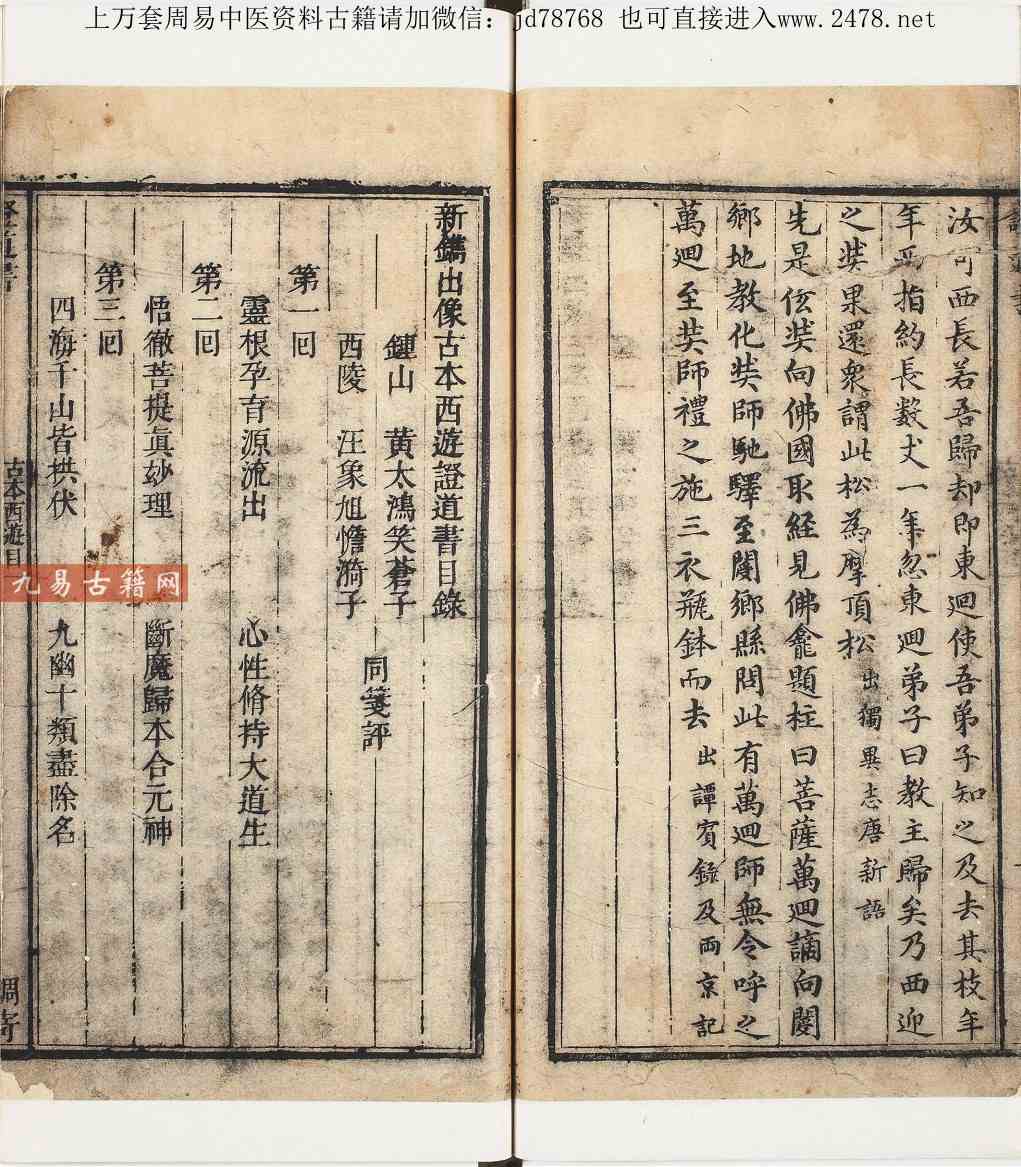 上万套周易中医资料古籍请加微信：jd78768 也可直接进入www.2478.net
汝可西長若吾歸却即東迴使吾弟子知之及去其枝年
年西指約長數丈一年忽東迴弟子曰教主歸矣乃西迎
之奘果還衆謂此松為摩頂松 出獨異志唐新語
先是伭奘向佛國取經見佛龕題柱曰菩薩萬迴謫向閿
鄉地教化奘師馳驛至閿鄉縣問此有萬迴師無令呼之
萬迴至奘師禮之施三衣瓶鉢而去 出譚賓錄及両京記
新鐫出像古本西遊證道書目錄
鍾山 黃太鴻笑蒼子
西陵 汪象旭憺漪子
同箋評
第一回
靈根孕育源流出 心性脩持大道生
第二回
悟徹菩提眞妙理 斷魔歸本合元神
第三回
四海千山皆拱伏 九幽十類盡除名
古本西遊目
九易古籍网